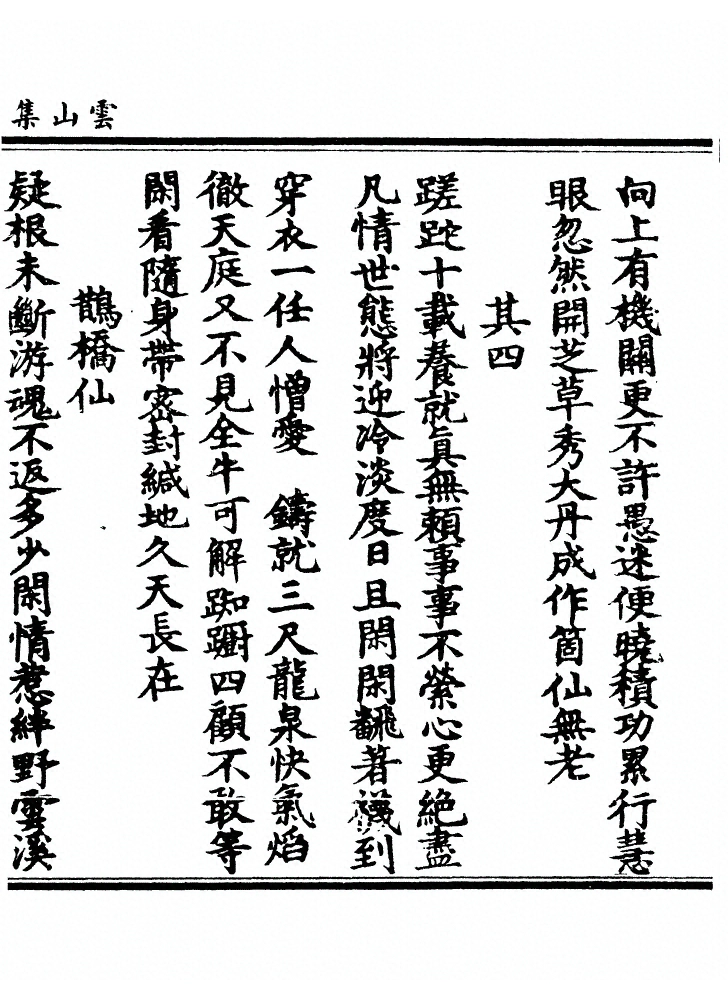 雲山集
向上有機關更不許愚迷便曉積功累行慧
眼忽然開芝草秀大丹成作箇仙無老
其四
蹉跎十載養就真無賴事事不縈心更絕盡
凡情世態將迎冷淡度日且閑閑飜著襪到
穿衣一任人憎愛　鑄就三尺龍泉快氣焰
徹天庭又不見全牛可解踟躕四顧不敢等
閑看隨身帶密封緘地久天長在
鵲橋仙
疑根未斷游魂不返多少閑情惹絆野雲溪